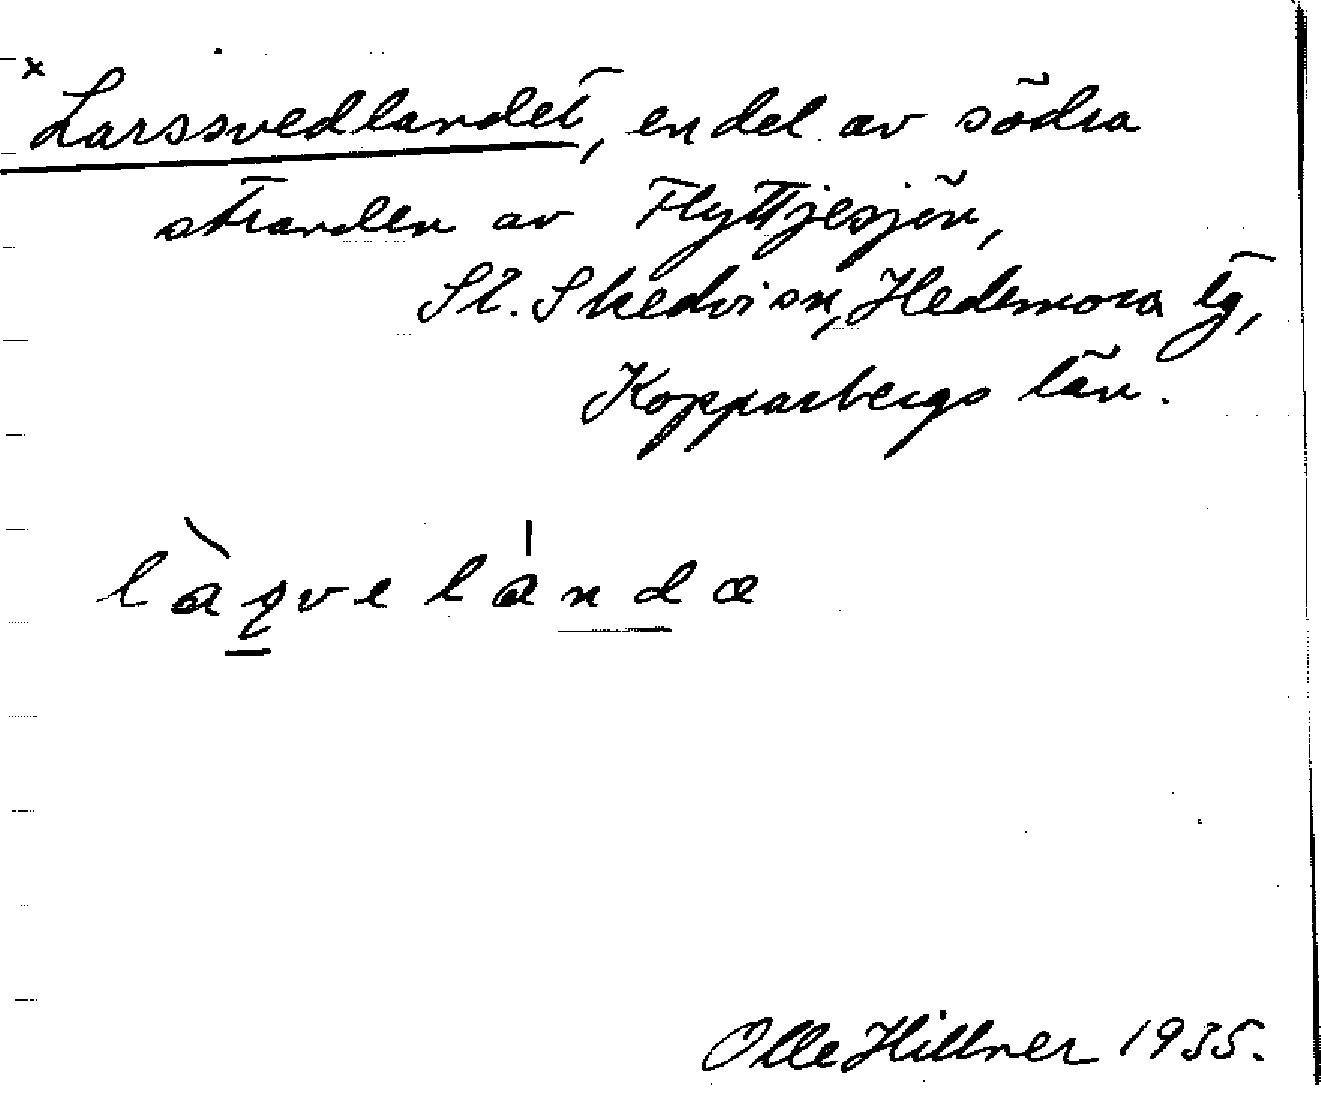 x Larssvedlandet, en del av södra
stranden av Flyttjesjön,
St. Skedvi sn, Hedemora tg,
Kopparbergs län.
làqvelandæ
Olle Hillner 1935.